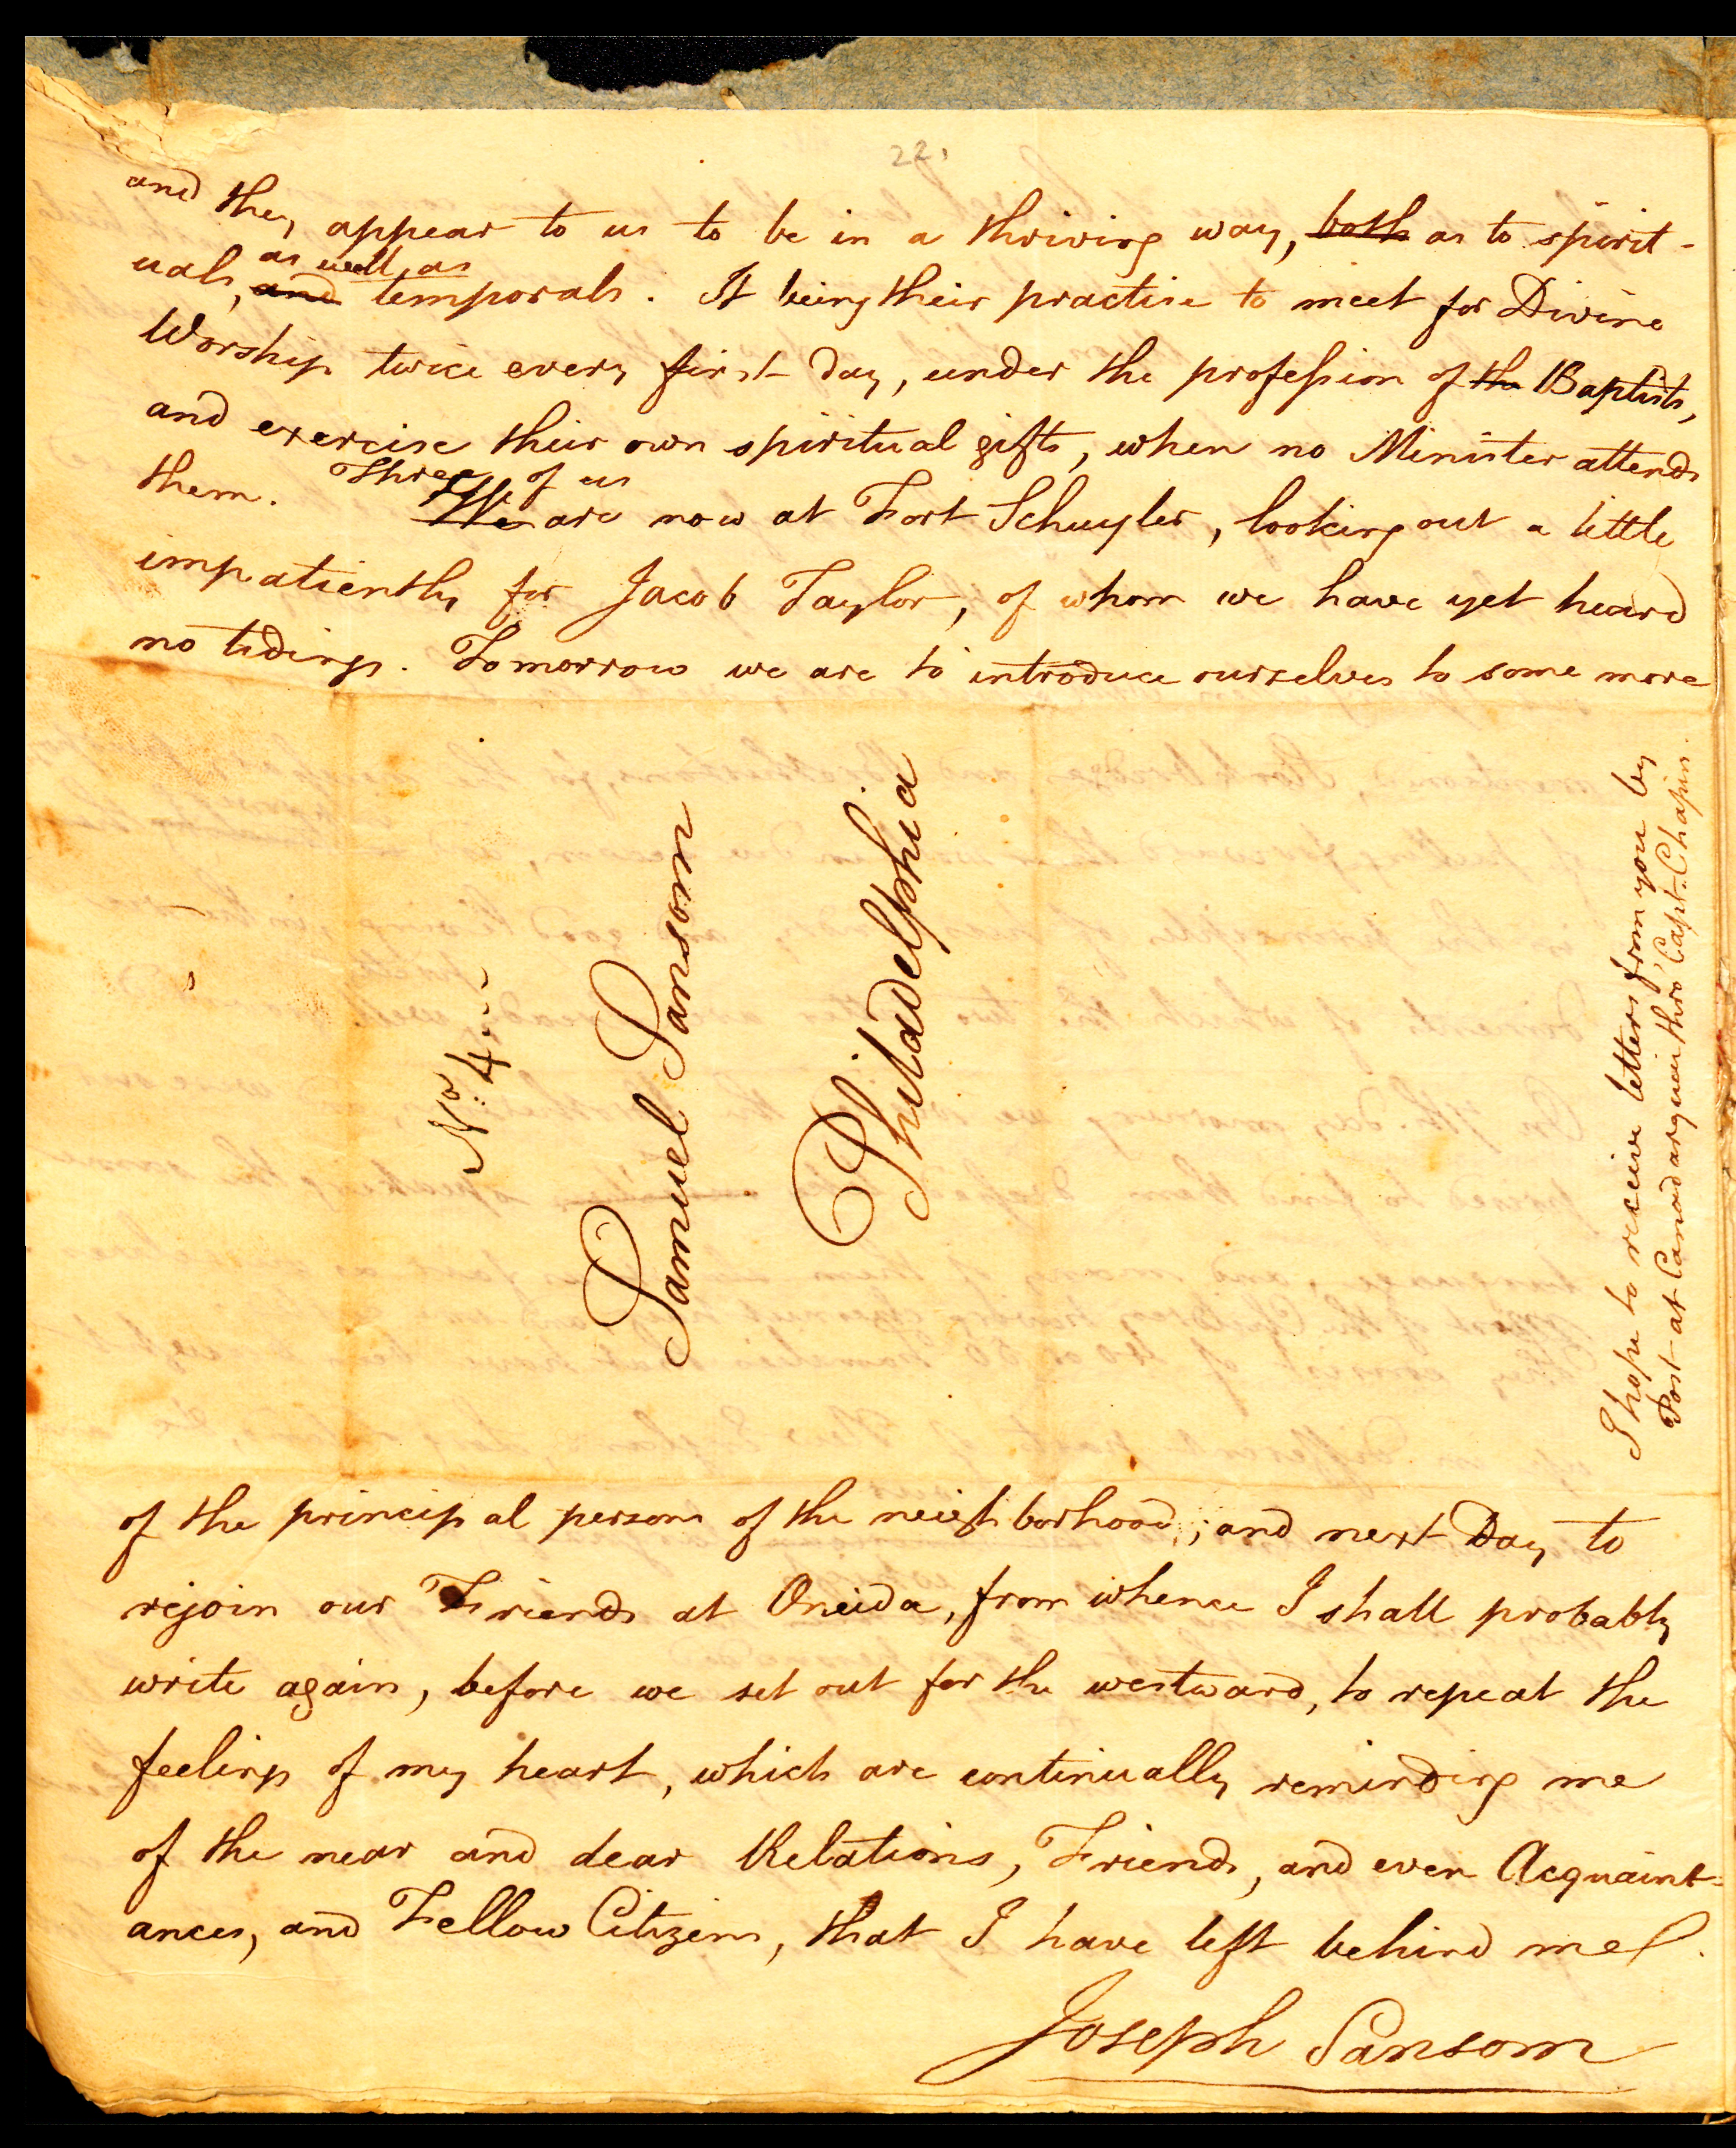 22.
and they appear to us to be in a thriving way, both as to spirit-
as well as
uals, and temporals. It being their practise to meet for Divine
Worship twice every first day, under the profession of the Baptists,
and exercise their own spiritual gifts, when no Minister attends
Three of us
them. We are now at Fort Schuyler, looking out a little
impatiently for Jacob Taylor, of whom we have yet heard
no tidings. Tomorrow we are to introduce ourselves to some more
No. 4
Samuel Sansom
Philadelphia
I hope to receive letters from you by
Post at Canadarquei thro' Capt. Chapin.
of the principal persons of the neighborhood; and next Day to
rejoin our Friends at Oneida, from whence I shall probably
write again, before we set out for the westward, to repeat the
feelings of my heart, which are continually reminding me
of the near and dear Relations, Friends, and even Acquaint-
ances, and Fellow Citizens, that I have left behind me.
Joseph Sansom